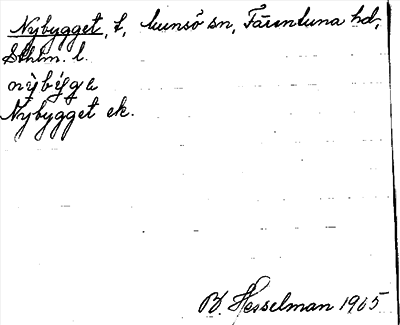 Nybygget, t, Munsö sn, Färentuna hd,
Sthlm. l.
nỳbýga
Nybygget ek.
B. Hesselman 1905